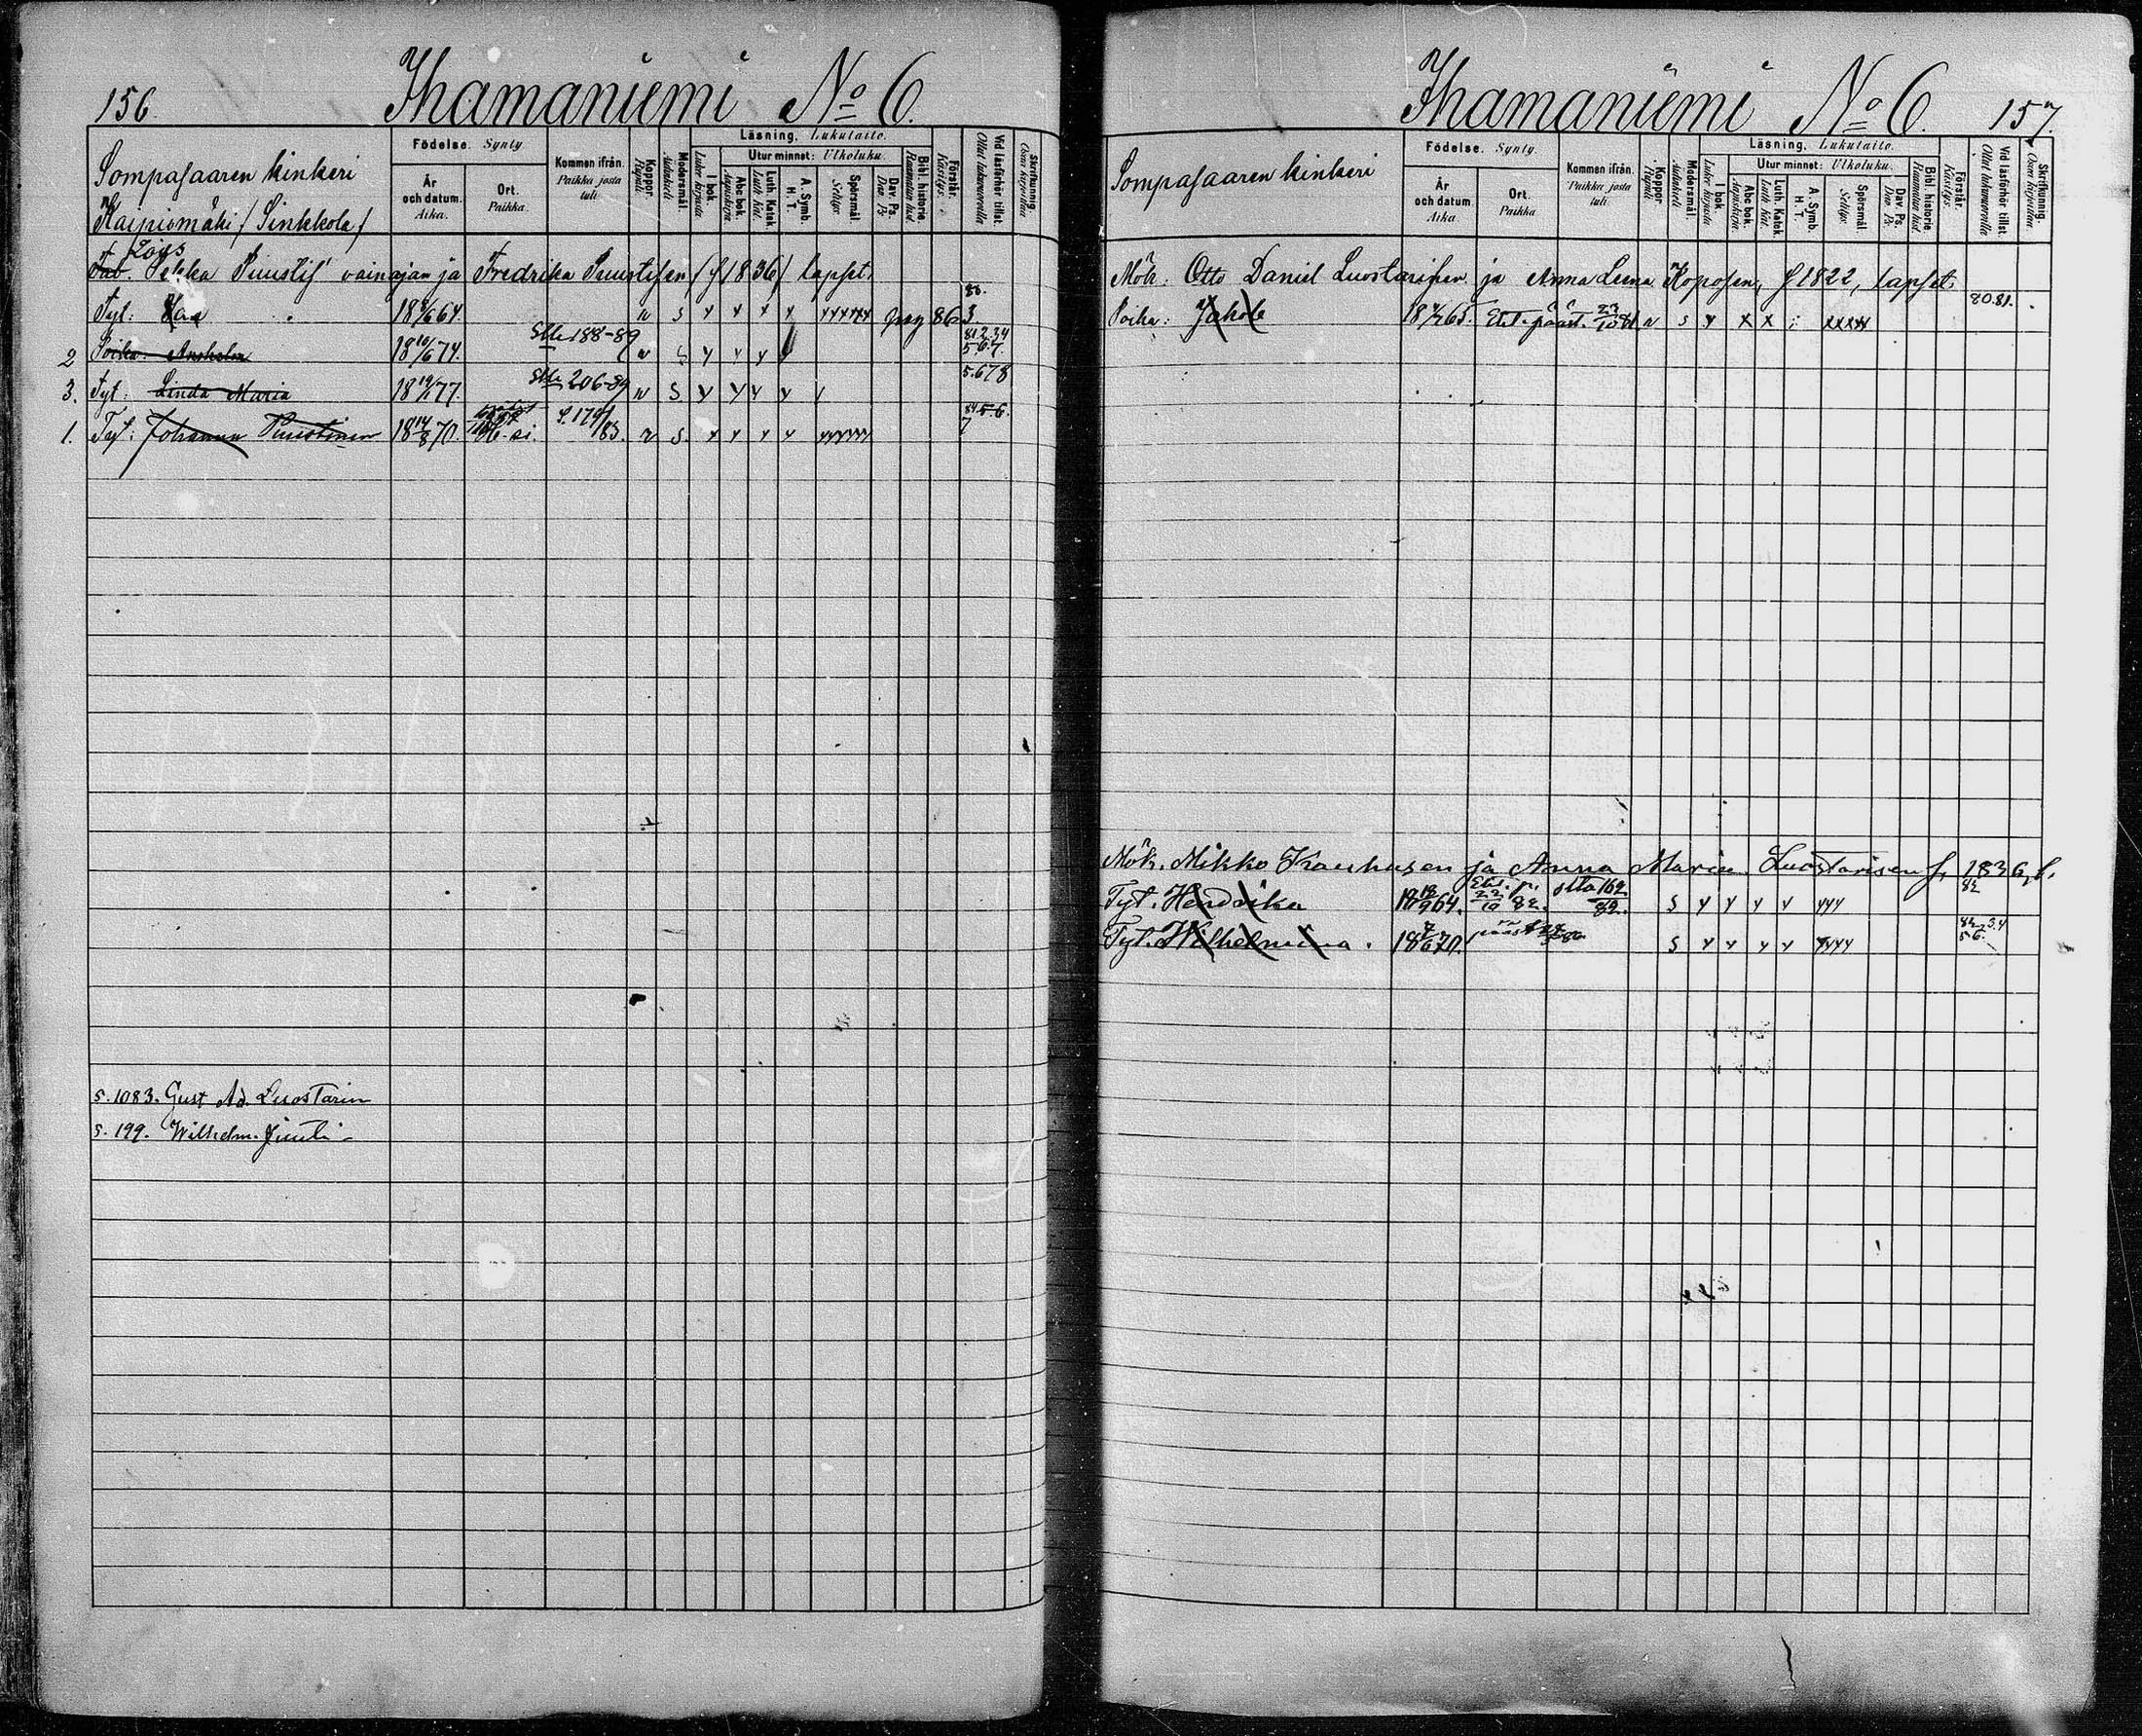 156.
Ihamaniemi No 6.
Sompasaaren kinkeri
Kaipiomäki / Sinkkola /
Födelse. Synty
År och datum. Aika.
Ort. Paikka.
Kommen ifrån. Paikka josta tuli.
Koppor. Rupuli
Modersmål. Äidinkieli
Läsning. Lukutaito.
I bok. Lukee kirjasta
Utur minnet: Ulkoluku.
Abc bok. Aapiskirja.
Luth. Katek. Luth. Kat.
A. Symb. H. T.
Spörsmål. Selitys.
Dav. Ps. Dav. Ps.
Bibl. historie. Raamatun hist.
Förstår. Käsitys.
Vid läsförhör tillst. Ollut lukuvuorolla
Skrifkunnig. Osaa kirjoittaa
Lois
Pekka Puustis' vainajan ja Fredrika Puustisen (f 1836) lapset.
Tyt: 18 64. s 86 3.
2 Poika: Ansholm 18 10/6 74. Siw 188-89 81 2.3.4 5.6.7.
3. Tyt: Linda Maria 18 77. Siw 206-89 s. 5.678
1. Tyt: Johanna Puustinen 18 14/8 70. S. 179/83. s. 84 5.6. 7
s. 1083. Gust Ad. Luostarin
s. 199. Wilhelm.
Ihamaniemi No 6. 157.
Sompasaaren kinkeri
Födelse. Synty.
År och datum. Aika.
Ort. Paikka
Kommen ifrån. Paikka josta tuli.
Koppor. Rupuli
Modersmål. Äidinkieli
Läsning. Lukutaito.
I bok. Lukee kirjasta
Utur minnet: Ulkoluku.
Abc bok. Aapiskirja.
Luth. Katek. Luth. Kat.
A. Symb. H. T.
Spörsmål. Selitys.
Dav. Ps. Dav. Ps.
Bibl. historie. Raamatun hist.
Förstår. Käsitys.
Vid läsförhör tillst. Ollut lukuvuorolla
Skrifkunnig. Osaa kirjoittaa
Mök: Otto Daniel Luostarisen ja Anna Leena Koposen, f 1822, lapset.
Poika: Jakob 18 65. Eht. pääst. 23/10 81. s x x xxxxx 80.81.
Mök. Mikko Kauhusen ja Anna Maria Luostarisen f. 1836, l.
Tyt. Hendrika 18 18/9 64. Eht. p. 22/10 82. siw 162/82. s 82
Tyt. Wilhelmina. 18 7/6 70. s 82.3.4 5 6.